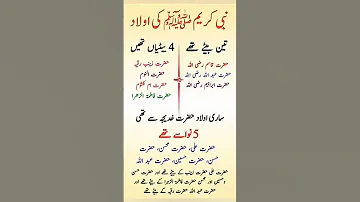 نبی کریم ﷺ کی اولاد
تین بیٹے تھے
4 بیٹیاں تھیں
حضرت قاسم رضی اللہ
حضرت عبد اللہ رضی اللہ
حضرت ابراہیم رضی اللہ
حضرت زینب رقیہ
حضرت ام کلثوم
حضرت فاطمۃ الزہرا
ساری اولاد حضرت خدیجہ سے تھی
5 نواسے تھے
حضرت علی، حضرت محسن، حضرت
حسن، حضرت حسین، حضرت عبد اللہ
حضرت علی زینب کے بیٹے تھے اور حضرت حسن
حضرت عبد اللہ حضرت رقیہ کے بیٹے تھے